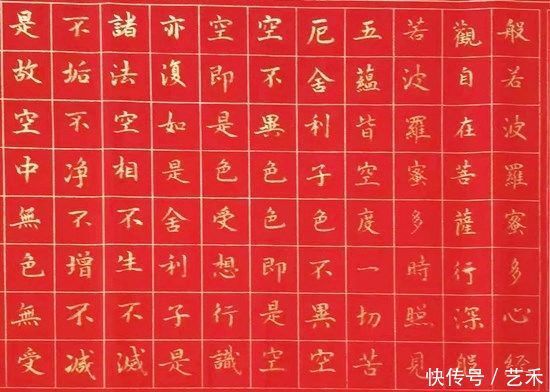 般若波羅蜜多心經
觀自在菩薩行深般
若波羅蜜多時照見
五蘊皆空度一切苦
厄舍利子色不異空
空不異色色即是空
空即是色受想行識
亦復如是舍利子是
諸法空相不生不滅
不垢不净不增不減
是故空中無色無受
快传号/艺禾